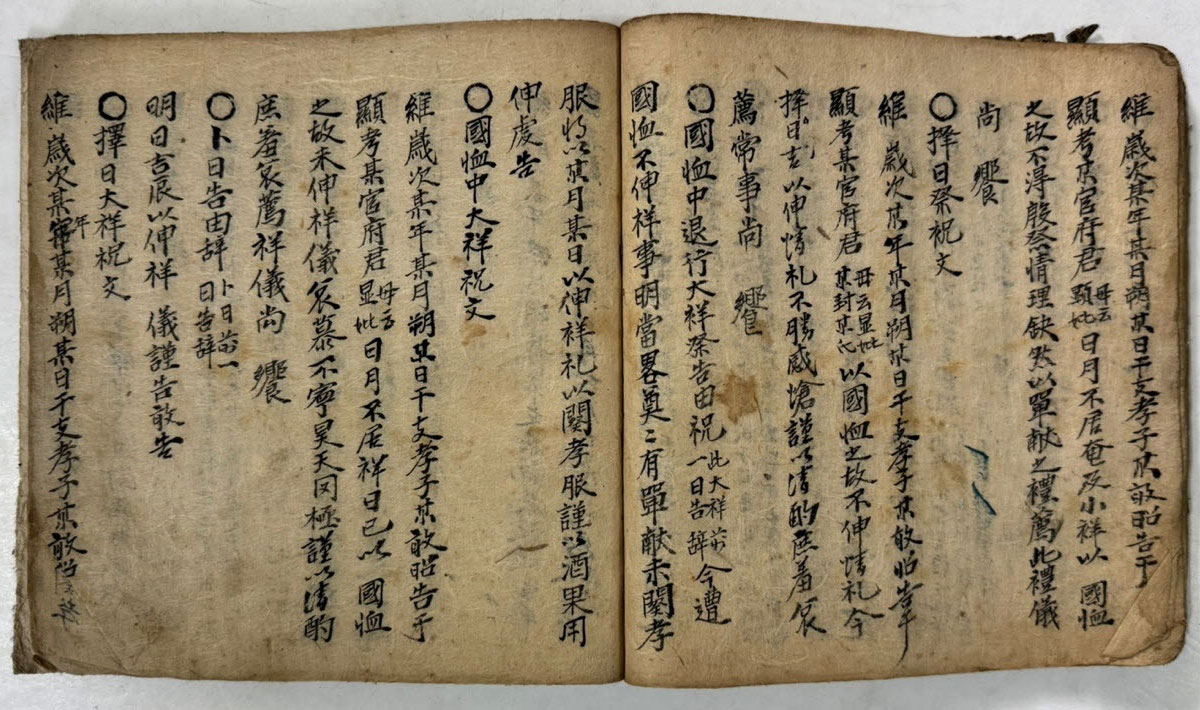 維 歲次某年某月朔某日干支孝子某敢昭告于
顯考某官府君 母云顯妣 日月不居奄及小祥以 國恤
之故不淂殷祭情理缺然以單献之禮薦此禮儀
尚 饗
〇擇日祭祝文
維 歲次某年某月朔某日干支孝子某敢昭告于
顯考某官府君 母云显妣某封某氏 以國恤之故不伸情礼今
擇日 以伸情礼不勝感愴謹以清酌庶羞哀
薦常事尚 饗
〇國恤中退行大祥祭告由祝 此大祥前一日告辞 今遭
國恤不伸祥事明當畧奠〻有單献未闋孝
服將以某月某日以伸祥礼以闋孝服謹以酒果用
伸虔告
〇國恤中大祥祝文
維 歲次某年某月朔某日干支孝子某敢昭告于
顯考某官府君 母云显妣 日月不居祥日已以 國恤
之故未伸祥儀哀慕不寧昊天罔極謹以清酌
庶羞哀薦祥儀尚 饗
〇卜日告由辞 卜日前一日告辞
明日吉辰以伸祥 儀謹告敢告
〇擇日大祥祝文
維 歲次某年某月朔某日干支孝子某敢昭